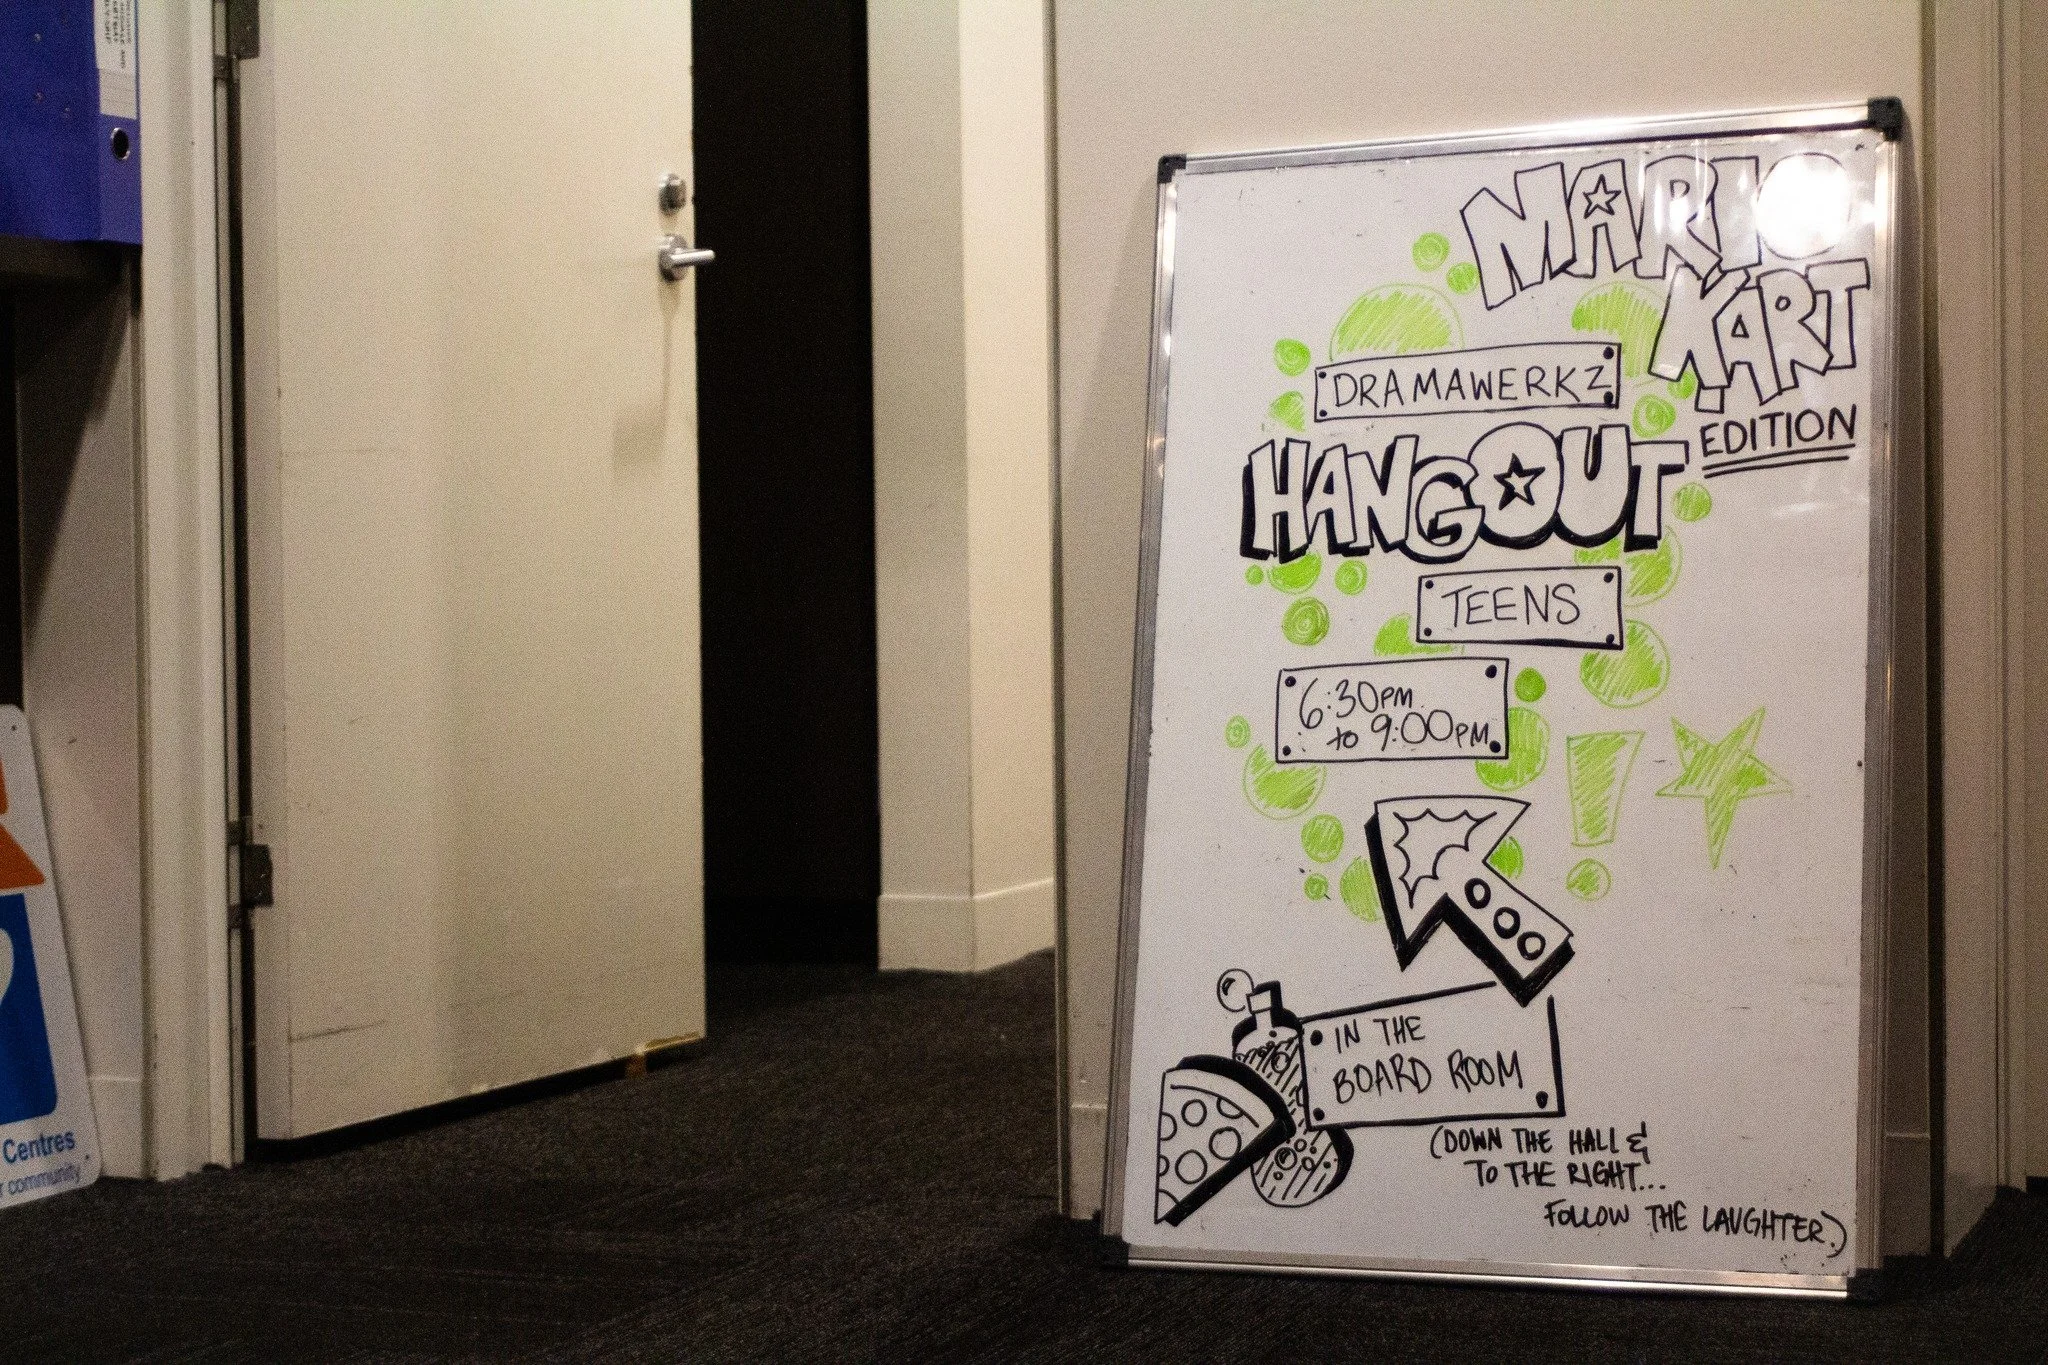 MARIO
KART
EDITION
DRAMAWERKZ
HANGOUT
TEENS
6:30PM
to 9:00PM
!
IN THE
BOARD ROOM
(DOWN THE HALL &
TO THE RIGHT...
FOLLOW THE LAUGHTER)
Centres
community